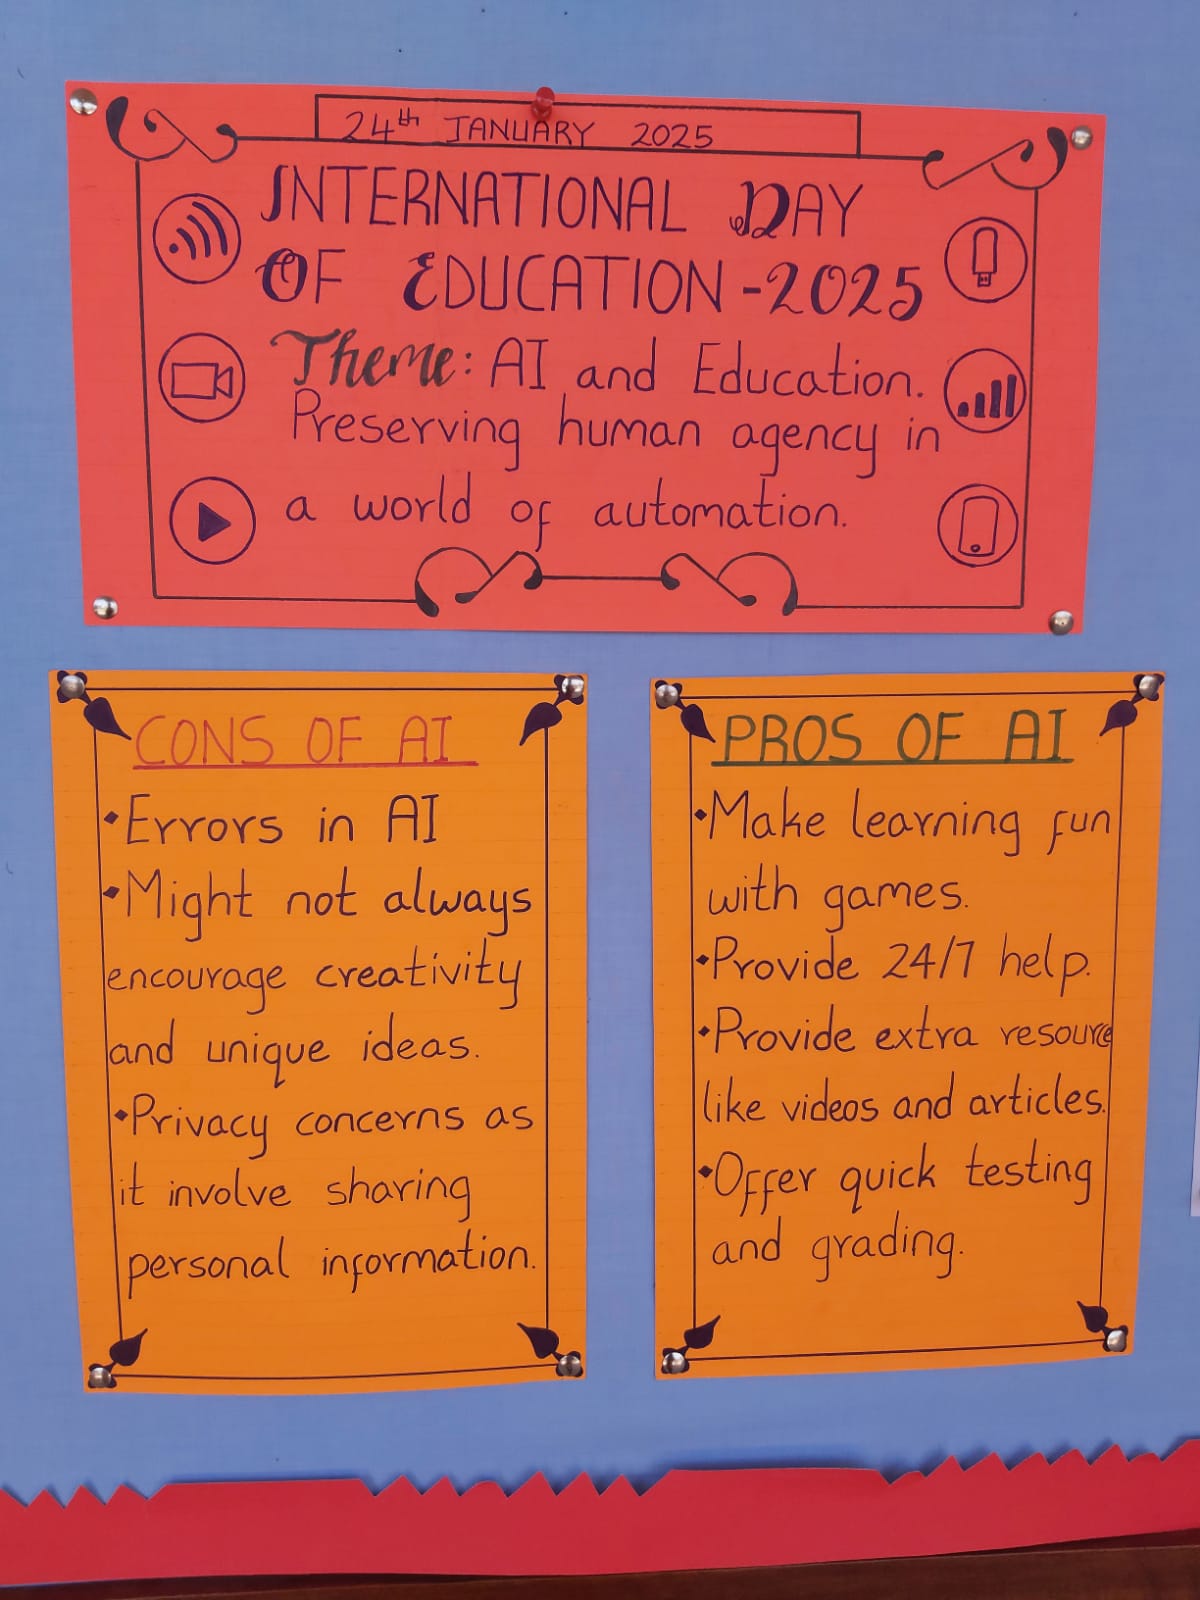 24th JANUARY 2025
INTERNATIONAL DAY
OF EDUCATION -2025
Theme: AI and Education.
Preserving human agency in
a world of automation.
CONS OF AI
•Errors in AI
•Might not always
encourage creativity
and unique ideas.
•Privacy concerns as
it involve sharing
personal information.
PROS OF AI
•Make learning fun
with games.
•Provide 24/7 help.
•Provide extra resource
like videos and articles.
•Offer quick testing
and grading.